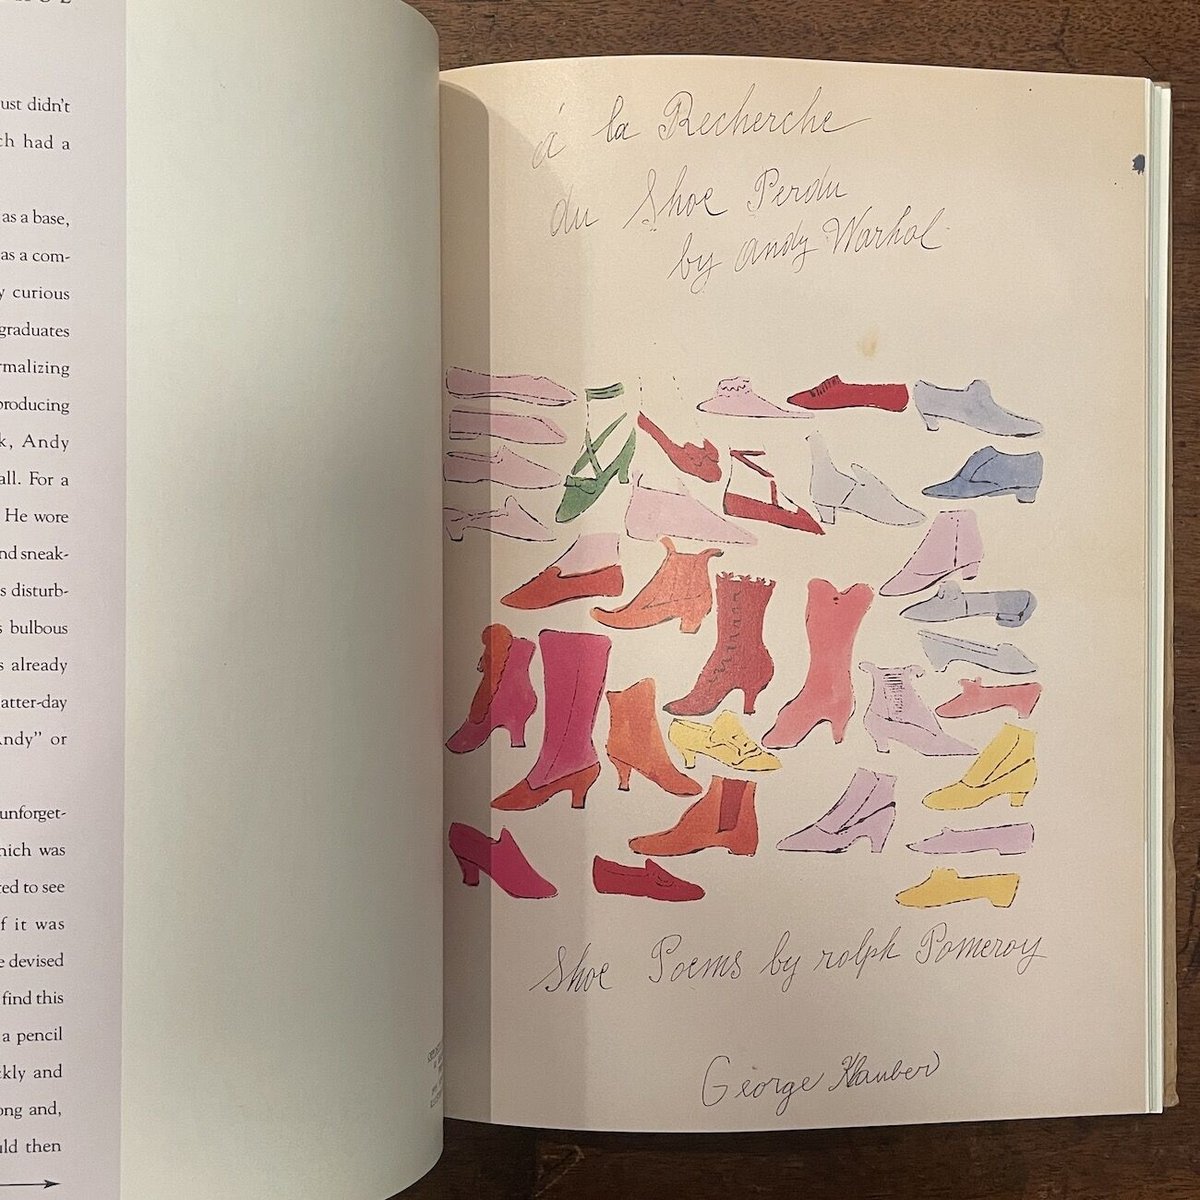 ust didn't
ch had a
as a base,
as a com-
y curious
graduates
rmalizing
producing
k, Andy
all. For a
He wore
nd sneak-
s disturb-
s bulbous
s already
atter-day
Andy" or
unforget-
hich was
ted to see
f it was
e devised
find this
a pencil
ckly and
ong and,
uld then
á la Recherche
du Shoe Perdu
by andy Warhol
Shoe Poems by ralph Pomeroy
George Klauber